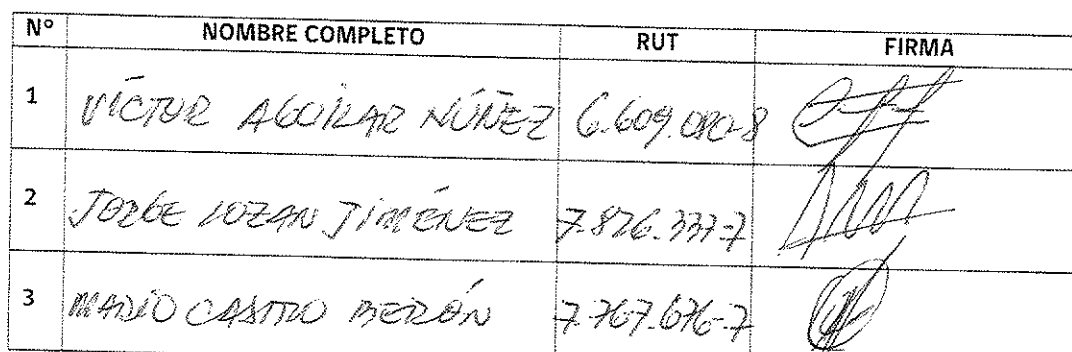 N° NOMBRE COMPLETO RUT FIRMA
1 VÍCTOR AGUILAR NÚÑEZ 6.609.080-8
2 JORGE LOZAN JIMÉNEZ 7.826.337-7
3 MARIO CASTRO 7.767.676-7